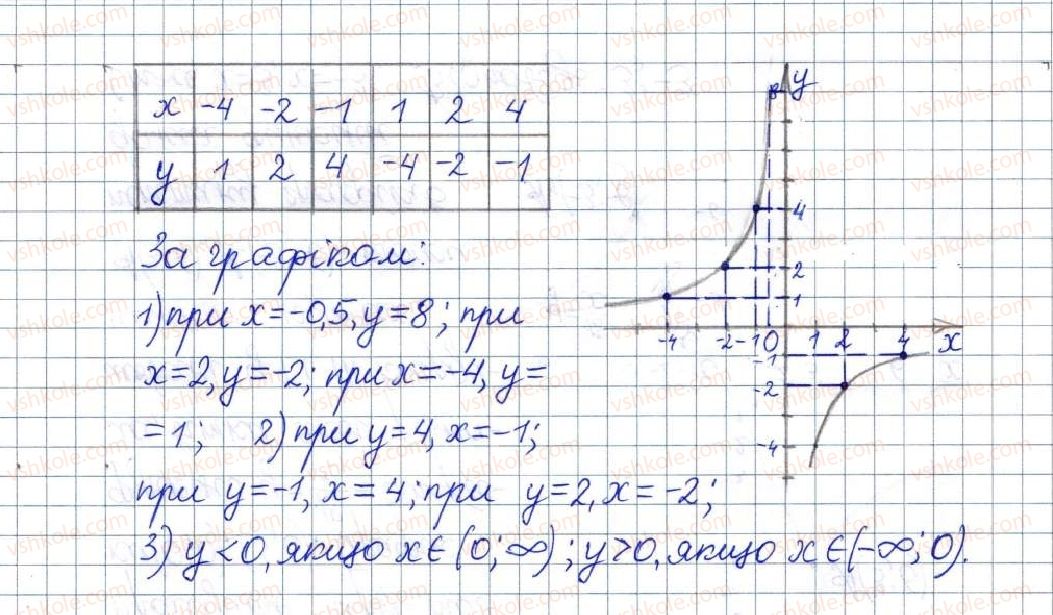 x -4 -2 -1 1 2 4
y 1 2 4 -4 -2 -1
За графіком:
1) при x=-0,5, y=8; при
x=2, y=-2; при x=-4, y=
=1; 2) при y=4, x=-1;
при y=-1, x=4; при y=2, x=-2;
3) y<0, якщо x∈(0;∞); y>0, якщо x∈(-∞;0).
8 y
4
2
1
-4 -2 -1 0 1 2 4 x
-1
-2
-4
vshkole.com